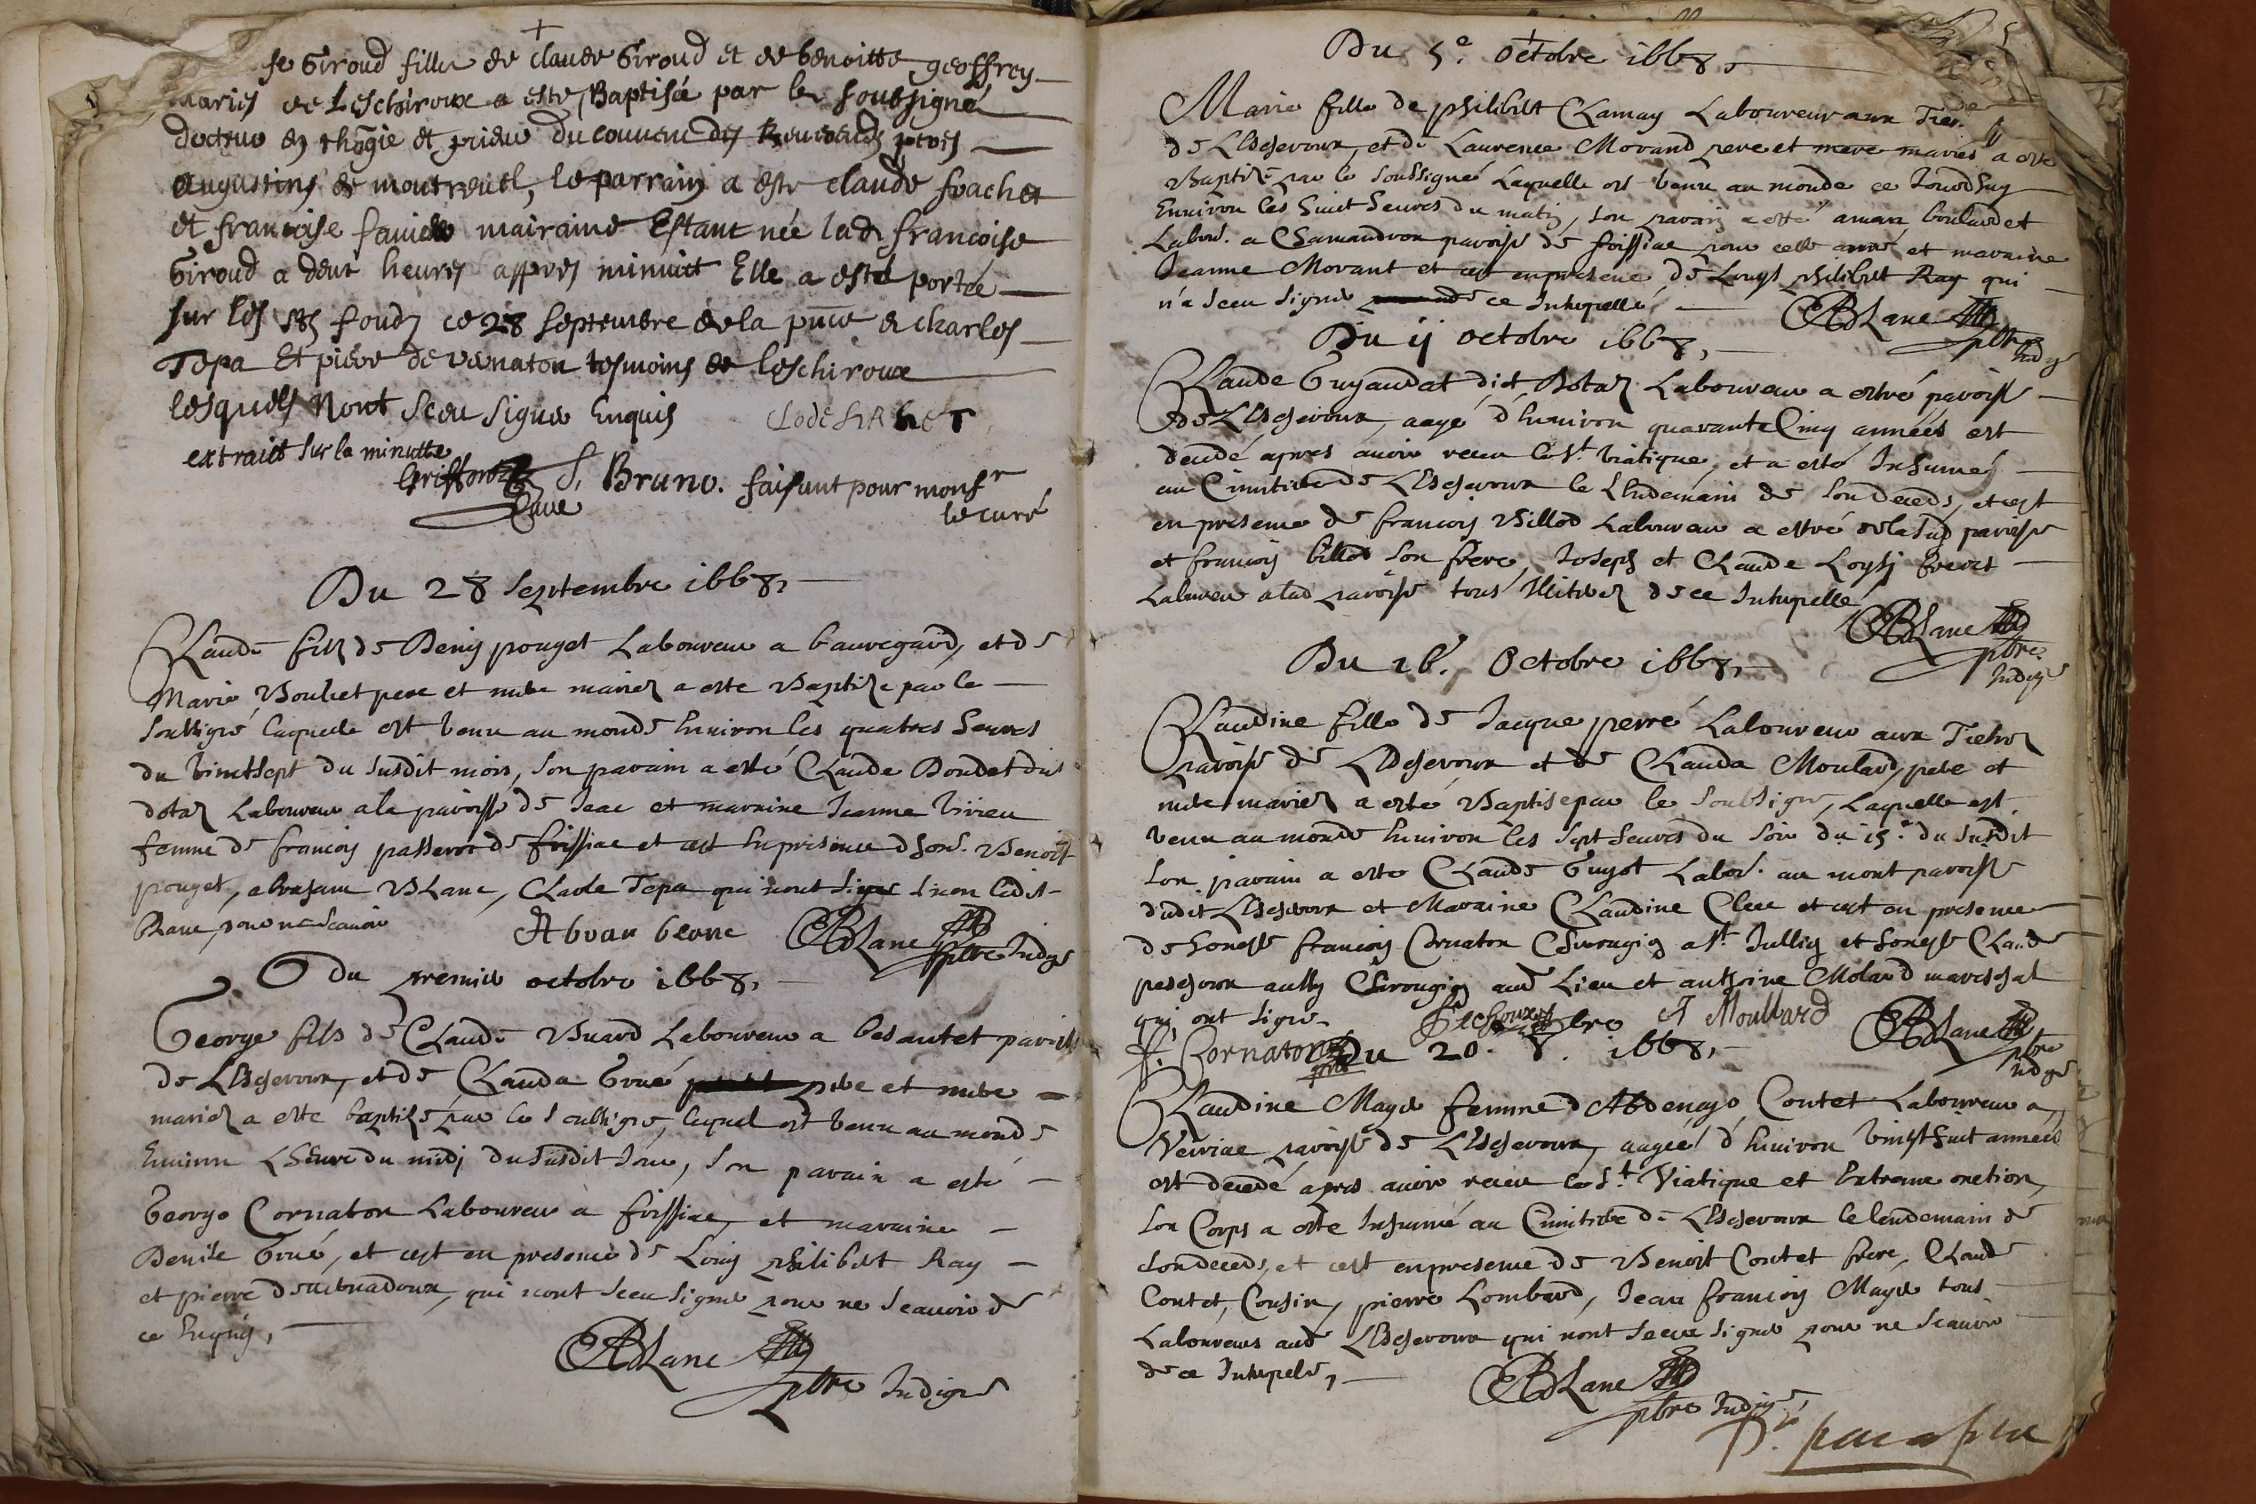 se Giroud fille de claude Giroud et de benoitte geoffrey
mariés de Leschiroux a este Baptisée par le soubsigné
docteur en theogie et prieur du couvent des Reverends peres
augustins de montreuel, le parrain a este claude frachet
et francoise mairaine Estant née lad francoise
Giroud a deux heures appres minuict Elle a esté portée
sur les sts fondz ce 28 septembre de la pnce de charles
Tepa Et piere de vernaton tesmoins de leschiroux
lesquels Nont sceu signer Enquis
extraict sur la minutte
S. Bruno. faisant pour monsr
le curé
Du 28 Septembre 1668,
Claude filz de Denis pouget Laboureur a bauregard, et de
Marie Bouliet pere et mere mariez a este Baptize par le
soubsigné laquelle est venu au monde environ les quatres heures
du vinctsept du susdit mois, son parain a esté Claude Dondet dit
dotaz Laboureur a la paroisse de Jeac et marraine Jeanne Vivieu
femme de francois passerot de foissiac et cest en presence d hon. Benoist
pouget, abraham Blanc, Claude Tepa qui nont signé sinon ledit
Blanc, pour ne scavoir
Abran blanc CABLanc pbre Indigne
Du premier octobre 1668,
George fils de Claude Buard Laboureur a besantet paroisse
de LEscheroux, et de Clauda Gué pere et mere
mariez a este baptizé par le soubsigné, lequel est venu au monde
Environ Lheure du midj du susdit Jour, son parain a esté
George Cornaton Laboureur a foissiac, et maraine
Denise Gué, et cest en presence de Louis philibert Ray
et pierre qui nont sceu signer pour ne scavoir de
ce Enquis,
CABLanc
pbre Indigne
Du 5e. octobre 1668,
Marie fille de philibert Chamay Laboureur aux
de LEscheroux, et de Laurence Morand pere et mere mariés a esté
Baptizé par le soubsigné Laquelle est venu au monde ce Jourdhuy
Environ les huict heures du matin, son parain a esté aman boulardet
Labour. a Chamandrox paroisse de foissiac pour cette année et maraine
Jeanne Morant et cest en presence de Louys philibert Ray qui
n'a sceu signer de ce Interpellé
CABLanc
pbre
Indigne
Du 11 octobre 1668,
Claude Guyaudat dict Botaz Laboureur a estré paroisse
de LEscheroux, aagé d'environ quarante Cinq années est
decedé apres avoir receu le St. Viatique, et a esté Inhumé
au Cimitiere de LEscheroux le Lendemain de son deceds, et cest
en presence de francois Billod Laboureur a estré de la sud paroisse
et francois billod son frere, Joseph et Claude Loysj freres
Laboureur a lad paroisse tous de ce Interpellé
CABLanc
pbre
Indigne
Du 16. Octobre 1668,
Claudine fille de Jacque perré Laboureur aux
paroisse de LEscheroux et de Clauda Moulard, pere et
mere mariez a esté Baptise par le soubsigné, Laquelle est
venu au monde Environ les sept heures du soir du 15e. du susdit
son parain a este Claude Guyot Labor. au mont paroisse
dudit LEscheroux et Maraine Claudine Clerc et cest en presence
de honeste francois Cornaton Chirougien a St. Jullin et honeste Claude
pescheroux aussy Chirougien aud Lieu et anthoine Molard mareschal
qui ont signé.
Pecheroux J Moullard CABLanc
pbre
Indigne
f. Cornaton
Du 20. 8. 1668,
Claudine Maye femme d'Abdenago Contet Laboureur a
Verriac paroisse de LEscheroux, aagée d'environ vingthuit années
est decedé apres avoir receu le St. Viatique et Extreme onction,
son Corps a este Inhumé au Cimitiere de LEscheroux le lendemain de
son deceds, et cest en presence de Benoist Contet frere, Claude
Contet, Cousin, pierre Lombard, Jean francois Maye tous
Laboureurs aud LEscheroux qui nont sceu signer pour ne scavoir
de ce Interpelé,
CABLanc
pbre Indigne